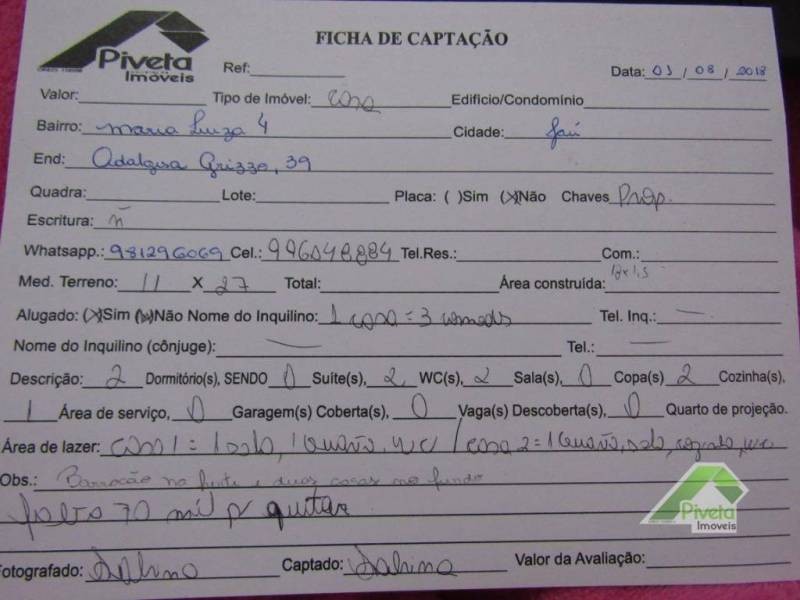 Piveta
Imóveis
FICHA DE CAPTAÇÃO
Ref: Data: 03 / 08 / 2018
Valor: Tipo de Imóvel: casa Edifício/Condomínio
Bairro: Maria Luiza 4 Cidade: Jaú
End: Adalgisa Grizzo, 39
Quadra: Lote: Placa: ( )Sim (X)Não Chaves Prop.
Escritura: ñ
Whatsapp.: 981296069 Cel.: 996048884 Tel.Res.: Com.:
Med. Terreno: 11 X 27 Total: Área construída:
Alugado: (X)Sim ( )Não Nome do Inquilino: 1 casa = 3 comodos Tel. Inq.: —
Nome do Inquilino (cônjuge): — Tel.: —
Descrição: 2 Dormitório(s), SENDO 0 Suíte(s), 2 WC(s), 2 Sala(s), 0 Copa(s) 2 Cozinha(s),
1 Área de serviço, 0 Garagem(s) Coberta(s), 0 Vaga(s) Descoberta(s), 0 Quarto de projeção.
Área de lazer: casa 1 = 1 sala, 1 quarto, wc / casa 2 = 1 quarto, sala, cozinha, wc
Obs.: Barracão na frente e duas casas no fundo
falta 70 mil p/ quitar
Piveta
Imóveis
Fotografado: Sabrina Captado: Sabrina Valor da Avaliação: